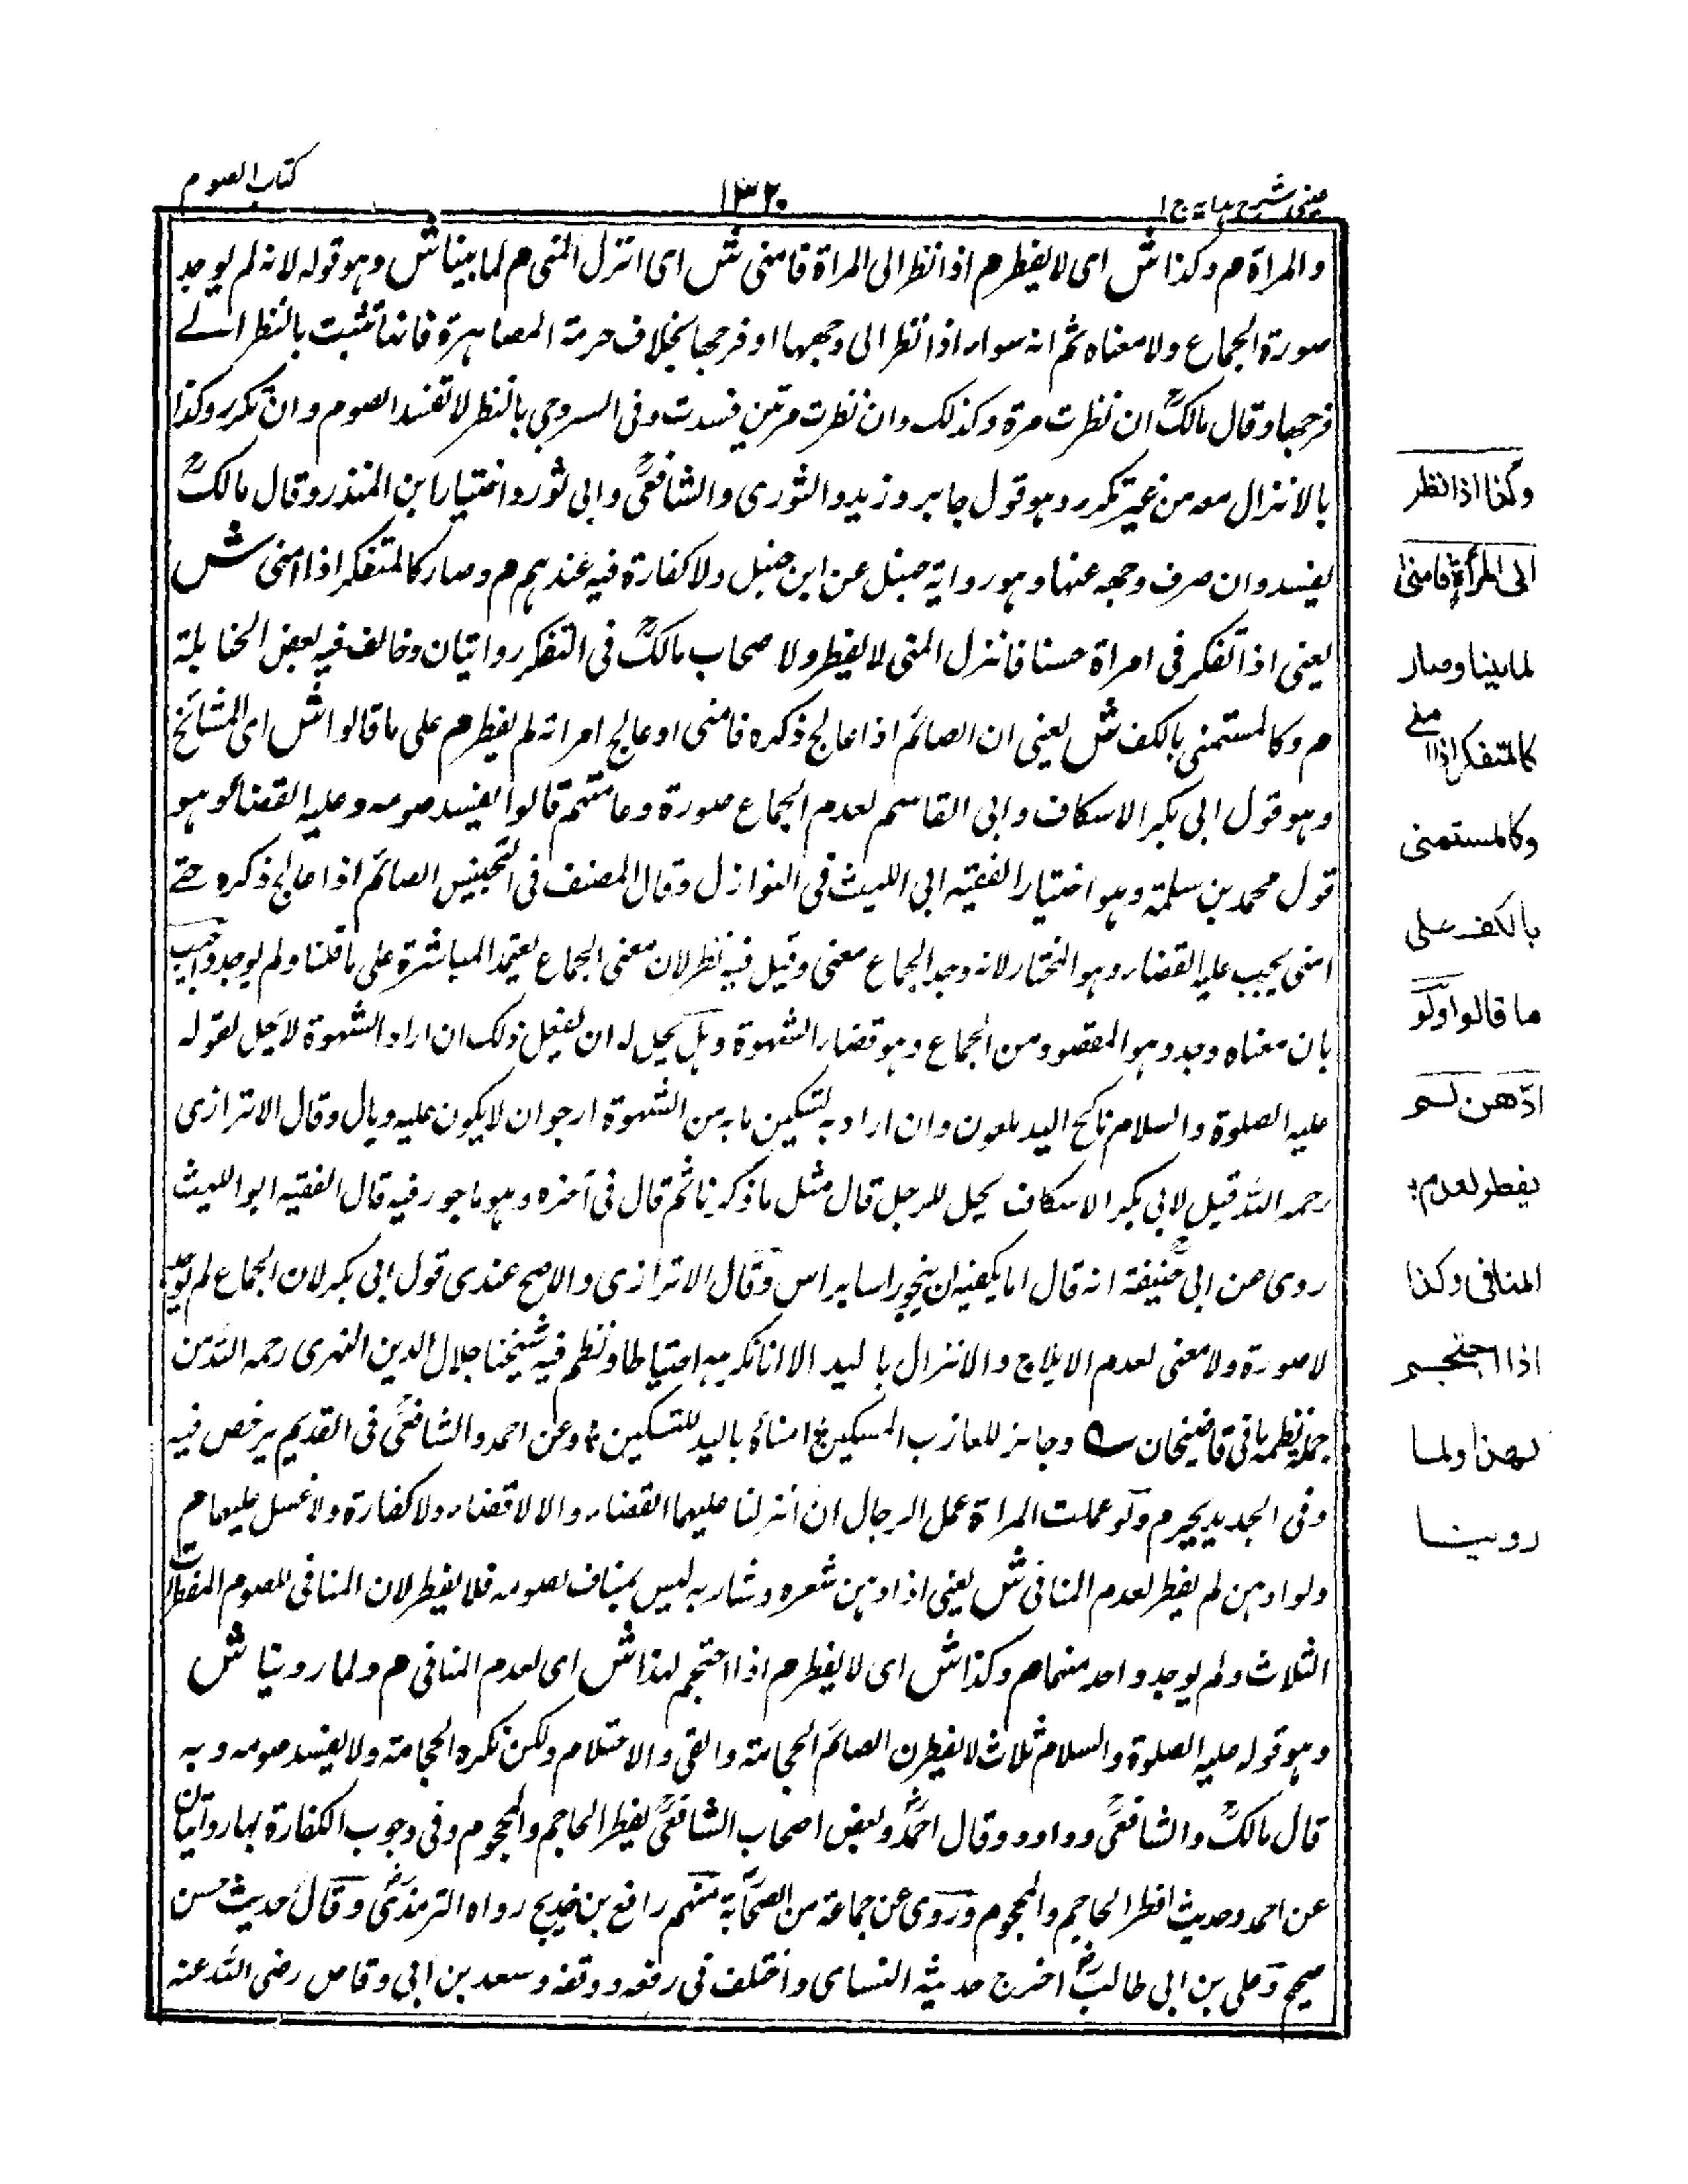 عینی شرح ہدایہ ج ۱
۱۳۲۰
کتاب الصوم
والمراة م وکذا ش ای لا یفطر م اذا نظر الی المراة فامنی ش ای انزل المنی م لما بینا ش وہو قولہ لانہ لم یوجد
صورة الجماع ولا معناہ ثم انہ سواء اذا نظر الی وجہہا او فرجہا بخلاف حرمة المصاہرة فانہا تثبت بالنظر الے
فرجہا وقال مالکؒ ان نظرت مرة وکذلک وان نظرت مرتین فسدت وفی السروجی بالنظر لا تفسد الصوم وان تکرر وکذا
بالانزال معہ من غیر تکرر وہو قول جابر وزید والثوری والشافعیؒ وابی ثور واختیار ابن المنذر وقال مالکؒ
یفسد وان صرف وجہہ عنہا وہو روایة حنبل عن ابن حنبل ولا کفارة فیہ عندہم م وصار کالمتفکر اذا امنی ش
یعنی اذا تفکر فی امراة حسنا فانزل المنی لا یفطر ولا صحاب مالکؒ فی التفکر روایتان وخالف فیہ بعض الحنابلة
م وکالمستمنی بالکف ش یعنی ان الصائم اذا عالج ذکرہ فامنی او عالج امراتہ لم یفطر م علی ما قالوا ش ای المشائخ
وہو قول ابی بکر الاسکاف وابی القاسم لعدم الجماع صورة وعامتہم قالوا یفسد صومہ وعلیہ القضاء وہو
قول محمد بن سلمة وہو اختیار الفقیہ ابی اللیث فی النوازل وقال المصنف فی التجنیس الصائم اذا عالج ذکرہ حتے
امنی یجب علیہ القضاء وہو المختار لانہ وجد الجماع معنی وقیل فیہ نظر لان معنی الجماع یعتمد المباشرة علی ما قلنا ولم یوجد واجیب
بان معناہ وجد وہو المقصود من الجماع وہو قضاء الشہوة وہل یحل لہ ان یفعل ذلک ان اراد الشہوة لا یحل لقولہ
علیہ الصلوة والسلام ناکح الید ملعون وان اراد بہ تسکین ما بہ من الشہوة ارجو ان لا یکون علیہ وبال وقال الاترازی
رحمہ اللہ قیل لابی بکر الاسکاف یحل للرجل قال مثل ما ذکرنا ثم قال فی آخرہ وہو ماجور فیہ قال الفقیہ ابو اللیث
روی عن ابی حنیفةؒ انہ قال اما یکفیہ ان ینجو راسا براس وقال الاترازی والاصح عندی قول ابی بکر لان الجماع لم یوجد
لا صورة ولا معنی لعدم الایلاج والانزال بالید الا انا نکرہہ احتیاطا ونظم فیہ شیخنا جلال الدین النہری رحمہ اللہ من
جملة نظمہ باقی قاضیخان وجائز للعازب المسکین امناؤہ بالید للتسکین وعن احمد والشافعیؒ فی القدیم یرخص فیہ
وفی الجدید یحرم ولو عملت المراة عمل الرجال ان انزلنا علیہما القضاء والا لا قضاء ولا کفارة ولا غسل علیہما م
ولو ادہن لم یفطر لعدم المنافی ش یعنی اذا دہن شعرہ وشاربہ لیس بمناف لصومہ فلا یفطر لان المنافی للصوم المفطرات
الثلاث ولم یوجد واحد منہا م وکذا ش ای لا یفطر م اذا احتجم لہذا ش ای لعدم المنافی م ولما روینا ش
وہو قولہ علیہ الصلوة والسلام ثلاث لا یفطرن الصائم الحجامة والقی والاحتلام ولکن تکرہ الحجامة ولا یفسد صومہ وبہ
قال مالکؒ والشافعیؒ وداود وقال احمدؒ وبعض اصحاب الشافعیؒ یفطر الحاجم والمحجوم وفی وجوب الکفارة بہا روایتان
عن احمد وحدیث افطر الحاجم والمحجوم وروی عن جماعة من الصحابة منہم رافع بن خدیج رواہ الترمذی وقال حدیث حسن
صحیح وعلی بن ابی طالبؓ اخرج حدیثہ النسای واختلف فی رفعہ ووقفہ وسعد بن ابی وقاص رضی اللہ عنہ
وکذا اذا نظر
الی المرأة فامنی
لما بینا وصار
کالمتفکر اذا امنے
وکالمستمنی
بالکف علی
ما قالوا ولو
ادهن لم
یفطر لعدم
المنافی وکذا
اذا احتجم
لهذا ولما
روینا